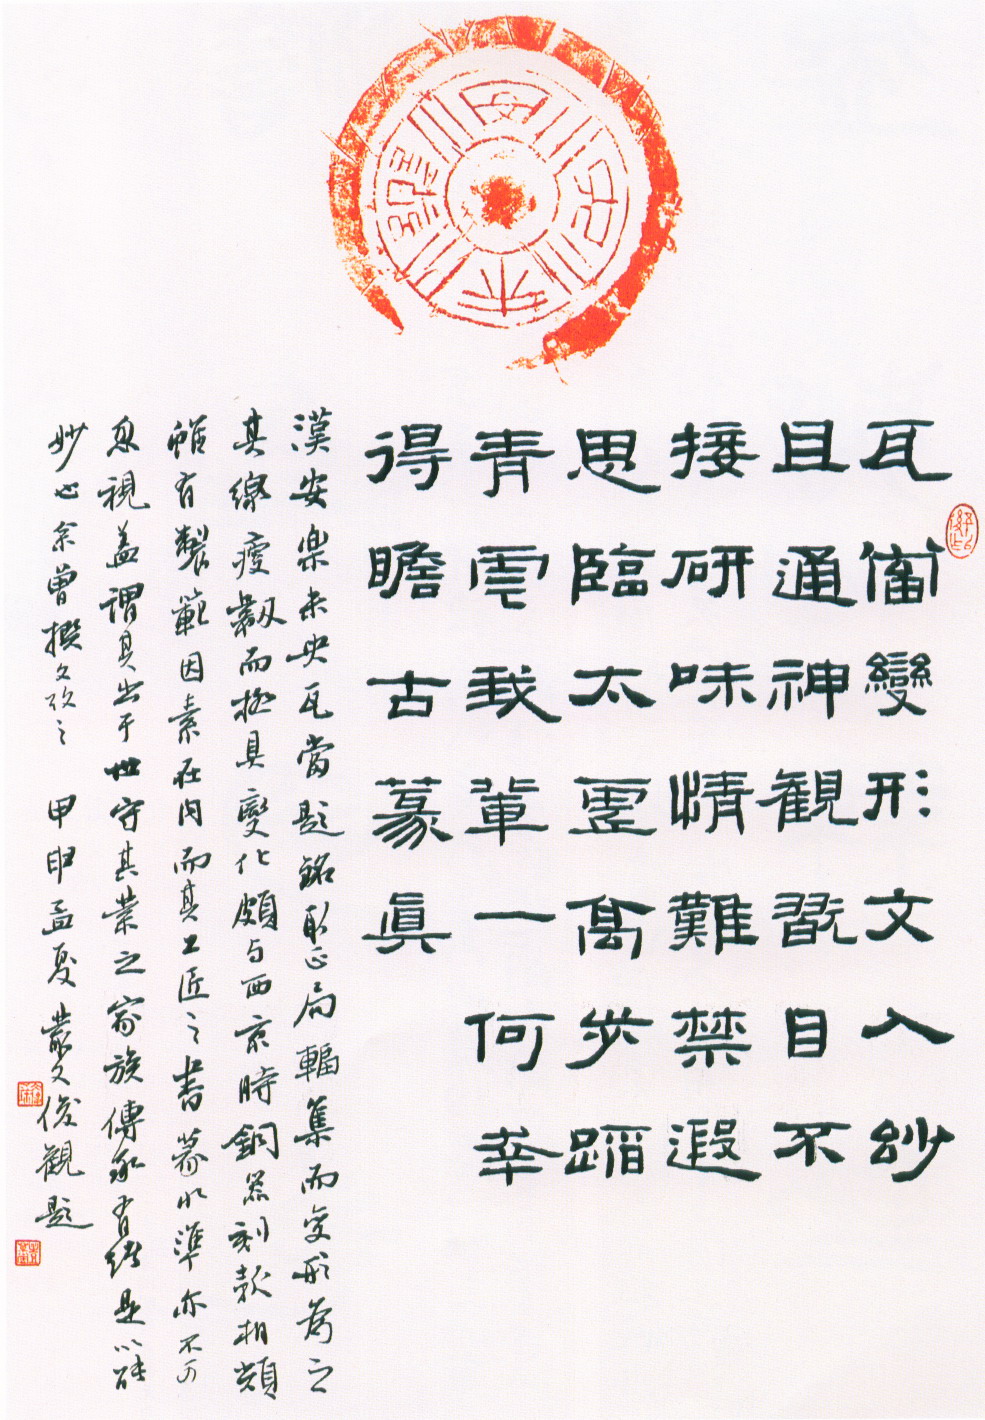 安樂未央
瓦變形文入玅
且通神觀翫目不
接研味情難禁遐
思臨太靈萬步蹈
青雲我輩一何幸
得瞻古篆眞
漢安樂未央瓦當題銘取正局輻集而變形為之
其繚瘦而極具變化頗与西京時銅器刻款相類
雖有製範因素在内而其工匠之書篆水準亦不可
忽視蓋謂具出于世守其業之家族傳承有緒是以能
妙也余曾撰文攷之 甲申孟夏叢文俊觀題